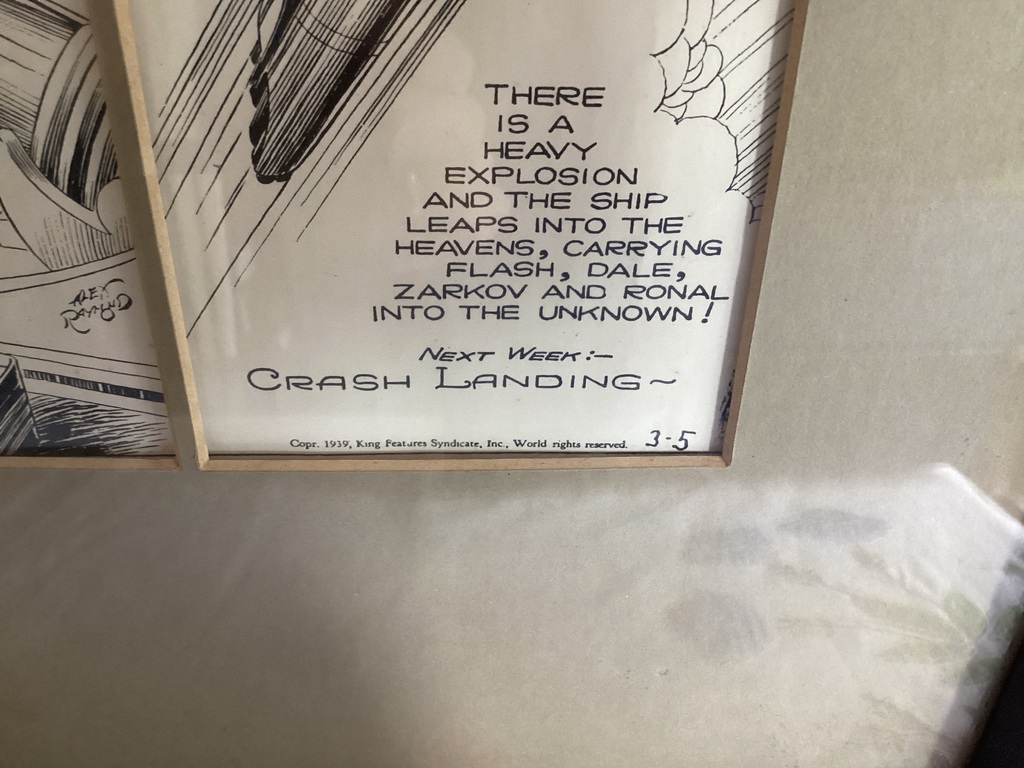 ALEX
RAYMOND
THERE
IS A
HEAVY
EXPLOSION
AND THE SHIP
LEAPS INTO THE
HEAVENS, CARRYING
FLASH, DALE,
ZARKOV AND RONAL
INTO THE UNKNOWN!
NEXT WEEK:—
CRASH LANDING~
Copr. 1939, King Features Syndicate, Inc., World rights reserved. 3-5